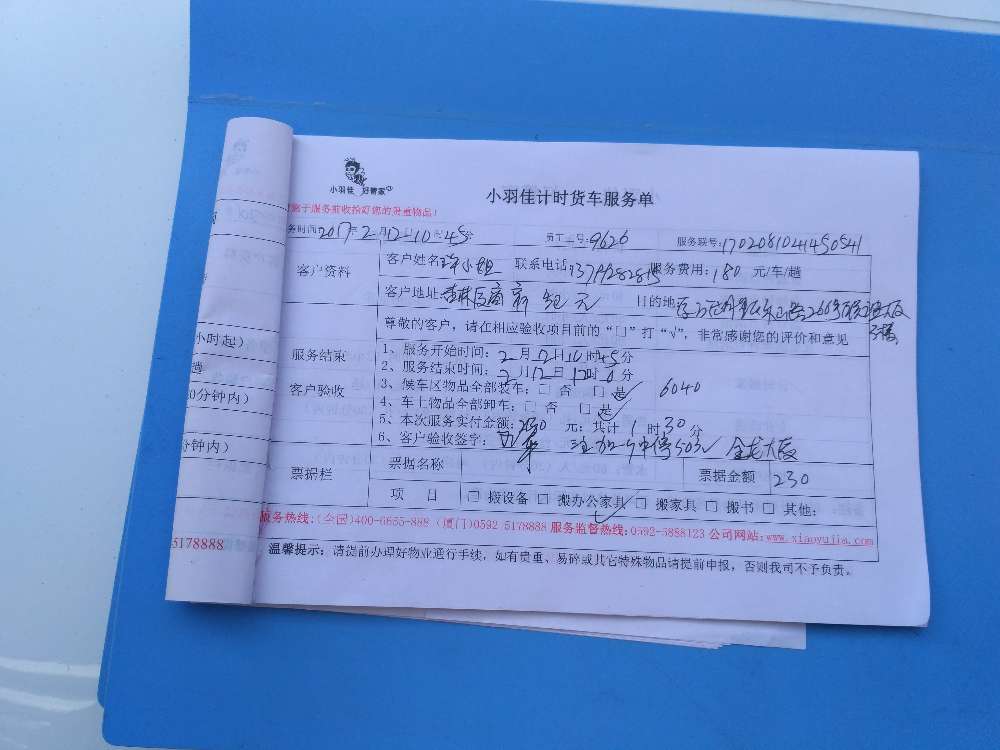 小羽佳 好管家
小羽佳计时货车服务单
于服务前收拾好您的贵重物品！
务时间:2017年2月12日10时45分 员工工号:9626 服务联号:1702081041450541
客户资料 客户姓名 小姐 联系电话 服务费用: 180 元/车/趟
客户地址: 目的地:
尊敬的客户，请在相应验收项目前的“□”打“√”，非常感谢您的评价和意见
服务结束
客户验收
1、服务开始时间: 2月12日10时45分
2、服务结束时间: 2月12日12时 分
3、候车区物品全部装车: □ 否 □ 是 6040
4、车上物品全部卸车: □ 否 □ 是
5、本次服务实付金额: 230 元: 共计 1 时 30 分
6、客户验收签字: 金龙大厦
票据栏 票据名称 票据金额 230
项 目 □ 搬设备 □ 搬办公家具 □ 搬家具 □ 搬书 □ 其他:
服务热线:(全国)400-6855-888 (厦门)0592 5178888 服务监督热线:0592-5888123 公司网站:www.xiaoyujia.com
温馨提示: 请提前办理好物业通行手续，如有贵重、易碎或其它特殊物品请提前申报，否则我司不予负责。
小时起)
0分钟内)
分钟内)
5178888